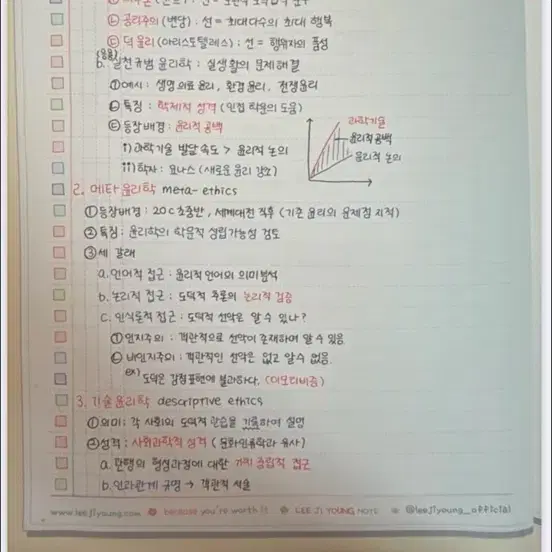 ⓑ 공리주의 (벤담) : 선 = 최대다수의 최대 행복
ⓒ 덕 윤리 (아리스토텔레스) : 선 = 행위자의 품성
(응용)
b. 실천규범 윤리학 : 실생활의 문제 해결
ⓐ예시 : 생명 의료 윤리, 환경 윤리, 전쟁윤리
ⓑ 특징 : 학제적 성격 (인접 학문의 도움)
ⓒ 등장 배경 : 윤리적 공백
과학기술
윤리적 공백
윤리적 논의
i) 과학기술 발달 속도 > 윤리적 논의
ii) 학자 : 요나스 (새로운 윤리 강조)
2. 메타 윤리학 meta-ethics
① 등장배경 : 20C 초중반, 세계대전 직후 (기존 윤리의 문제점 지적)
② 특징 : 윤리학의 학문적 성립가능성 검토
③ 세 갈래
a. 언어적 접근 : 윤리적 언어의 의미분석
b. 논리적 접근 : 도덕적 추론의 논리적 검증
c. 인식론적 접근 : 도덕적 선악은 알 수 있나?
ⓐ인지주의 : 객관적으로 선악이 존재하며 알 수 있음
ⓑ 비인지주의 : 객관적인 선악은 없고 알 수 없음.
ex) 도덕은 감정표현에 불과하다. (이모티비즘)
3. 기술 윤리학 descriptive ethics
① 의미 : 각 사회의 도덕적 관습을 기록하여 설명
② 성격 : 사회과학적 성격 (문화인류학과 유사)
a. 관행의 형성과정에 대한 가치 중립적 접근
b. 인과관계 규명 → 객관적 서술
www.leejiyoung.com because you're worth it LEE JI YOUNG NOTE @leejiyoung_official